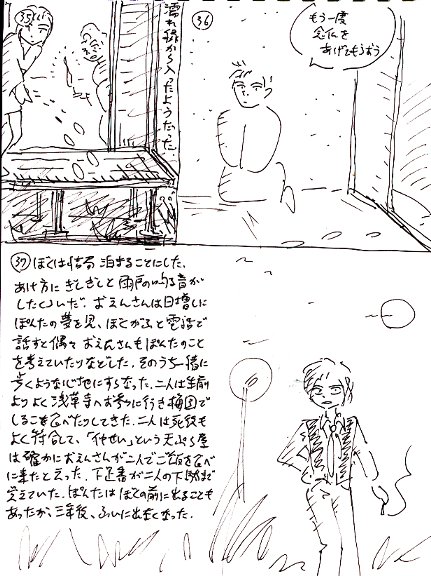 35
濡れ縁から入ったようだった
36
もう一度
念仏を
あげてもらおう
37 ぼくは結局 泊まることにした、
あけ方に ぎしぎしと 雨戸の鳴る音が
したくらいだ. おえんさんは日増しに
ぽんたの夢を見、ぼくがふと電話で
話すと偶々 おえんさんもぽんたのこと
を考えていたりなどした. そのうち一緒に
歩くような心地にすらなった. 二人は生前
よりよく浅草寺へお参りに行き梅園で
しるこを食べたりしてきた. 二人は死後も
よく符合して、という天ぷら屋
は確かにおえんさんが二人でご飯を食べ
に来たと云った. 下足番が二人の下駄まで
覚えていた. ぽんたはぼくの前に出ることも
あったが、三年後、ふいに出なくなった.